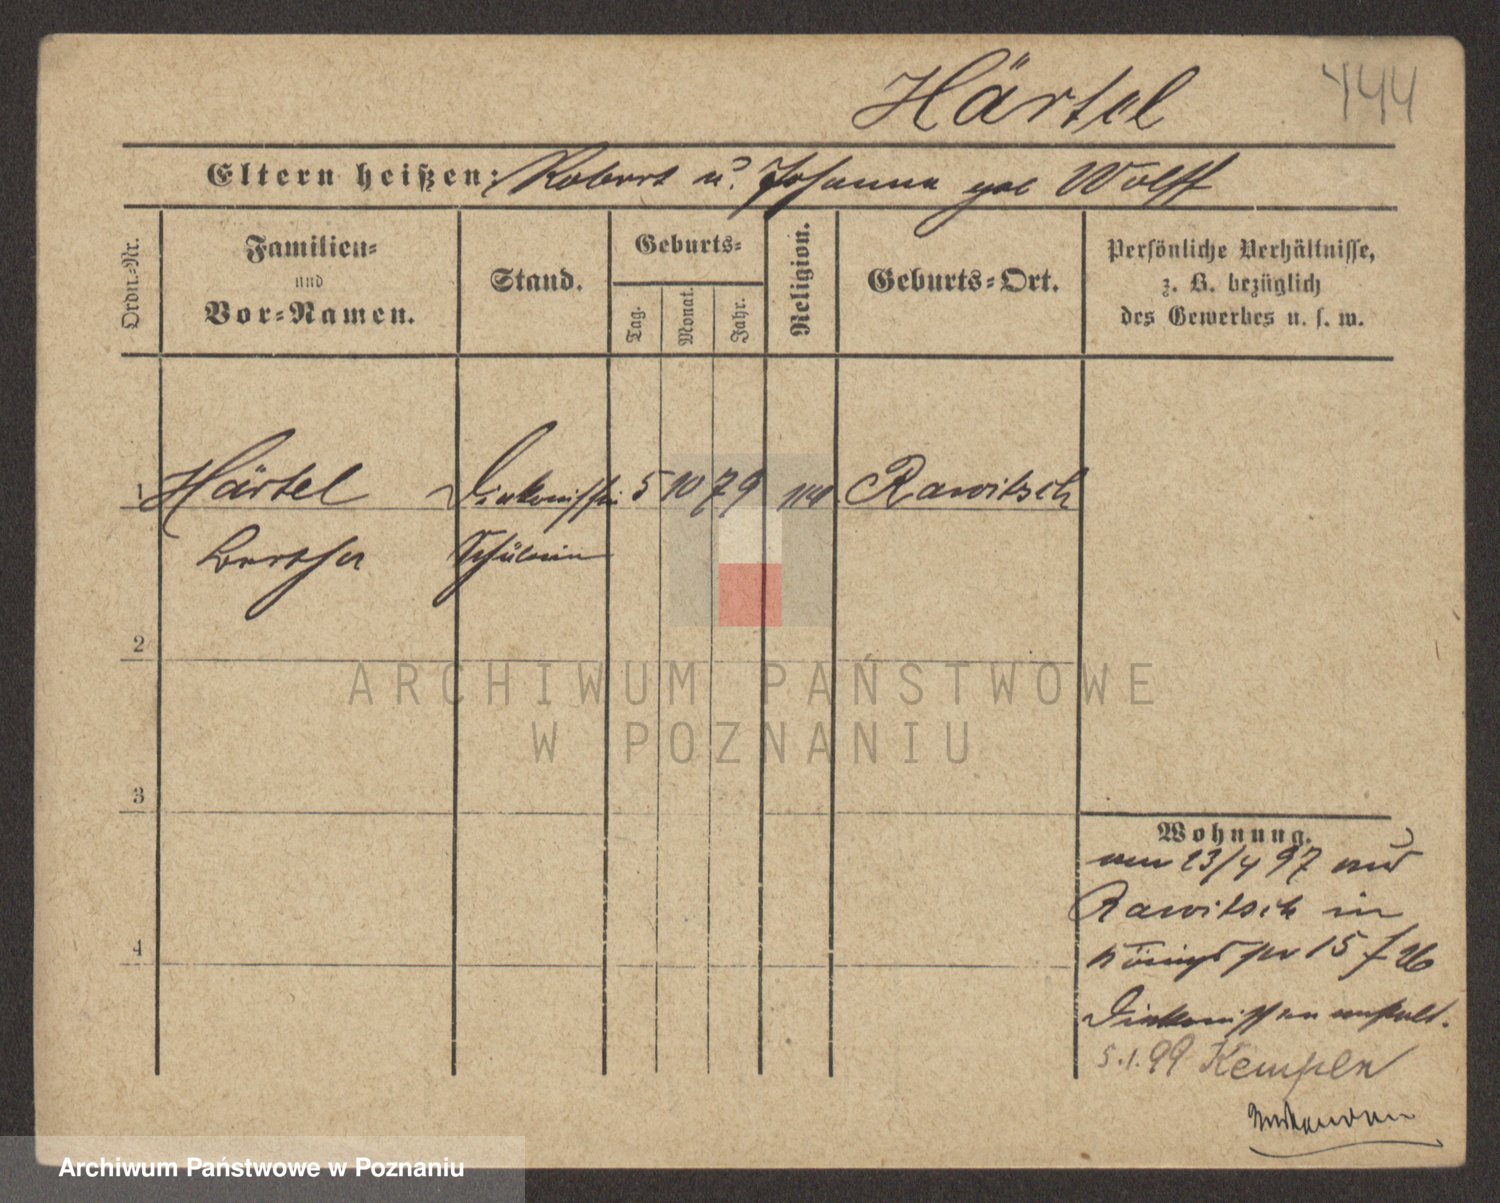 Härtel 444
Eltern heißen: Robert u. Johanna geb Wolff
Ordn.-Nr.
Familien-
und
Vor-Namen.
Stand.
Geburts-
Tag.
Monat.
Jahr.
Religion.
Geburts-Ort.
Persönliche Verhältnisse,
z. B. bezüglich
des Gewerbes u. s. w.
1 Härtel Diakonissin 5 10 79 Rawitsch
Bertha Schülerin
2
3
4
Wohnung.
am 23/4 97 aus
Rawitsch in
Königs 15
Diakonissenanstalt.
5.1.99 Kempen
ARCHIWUM PAŃSTWOWE
W POZNANIU
Archiwum Państwowe w Poznaniu